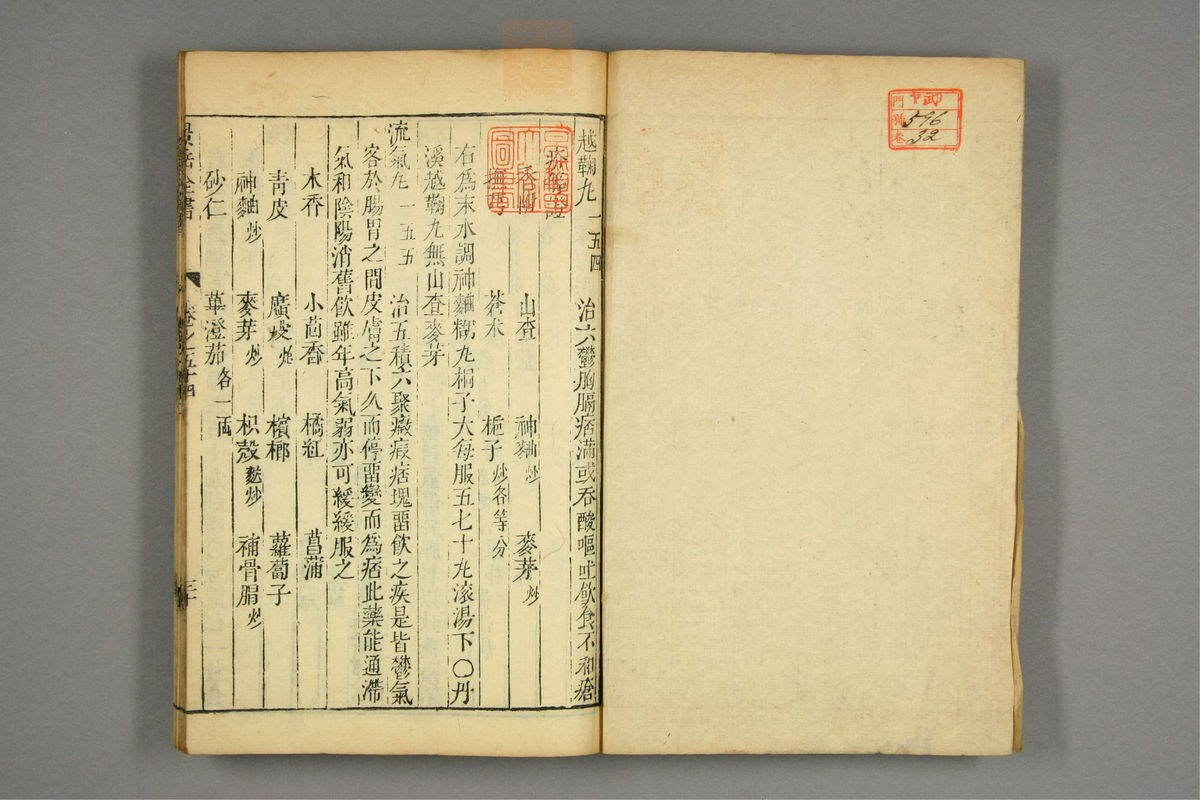 越鞠丸一五四 治六鬱胸膈痞滿或吞酸嘔吐飲食不和瘡
疥等證
香附 山查 神麯炒 麥芽炒
撫芎 蒼朮 梔子炒各等分
右爲末水調神麯糊丸梧子大每服五七十丸滚湯下〇丹
溪越鞠丸無山查麥芽
流氣丸一五五 治五積六聚癥瘕痞塊畱飲之疾是皆鬱氣
客於腸胃之間皮膚之下久而停畱變而爲痞此藥能通滯
氣和陰陽消舊飲雖年高氣弱亦可緩緩服之
木香 小茴香 橘紅 菖蒲
青皮 廣茂炮 檳榔 蘿蔔子
神麯炒 麥芽炒 枳殼麩炒 補骨脂炒
砂仁 蓽澄茄各一兩
景岳全書 卷之五十四
門
號 596
卷 32